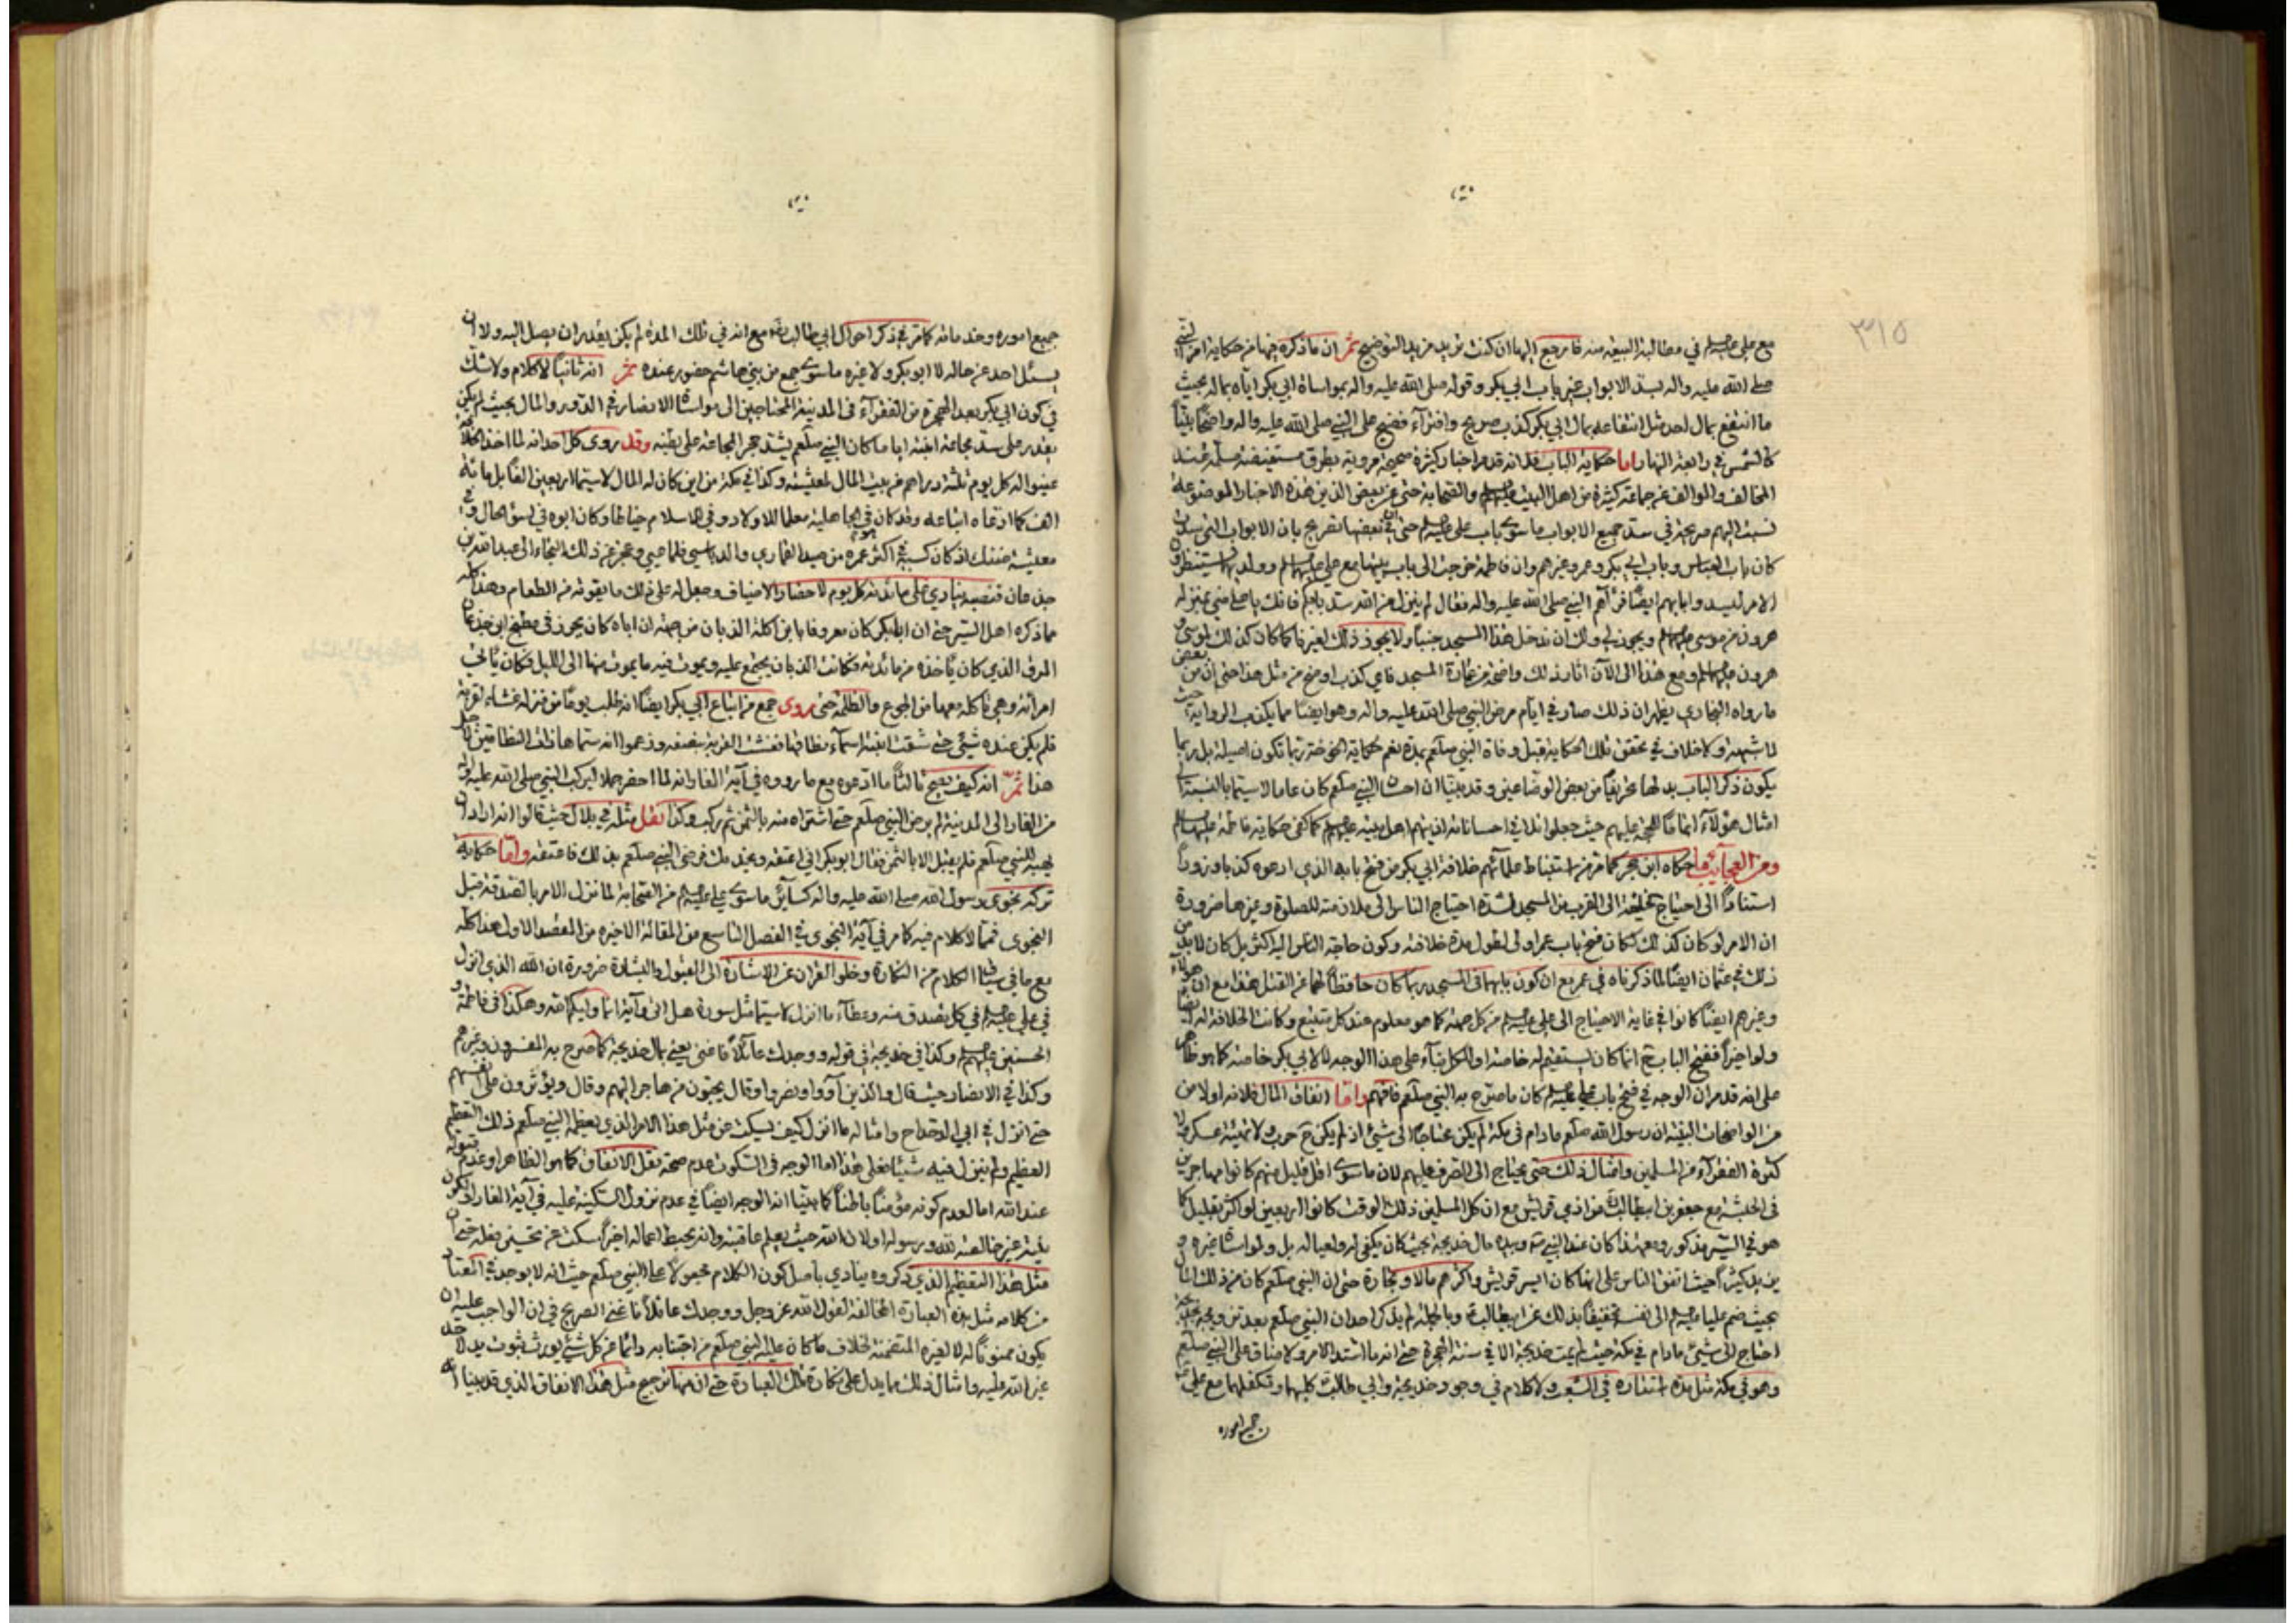 ٣١٥
مع علي عليه السلم في مطالبة البيعة منه فارجع إليها ان كنت تريد مزيد التوضيح ثمّ ان ما ذكره فيها من حكاية امر النبي
صلى الله عليه واله بسد الابواب غير باب ابي بكر وقوله صلى الله عليه واله بمواساة ابي بكر اياه بماله بحيث
ما انتفع بمال احد مثل انتفاعه بمال ابي بكر كذب صريح وافتراء فضيح على النبي صلى الله عليه واله واضحا بيّنا
كالشمس في رابعة النهار اما حكاية الباب فلانه قد مر اخبار كثيرة صحيحة مروية بطرق مستفيضة مسلمة عند
المخالف والموالف عن جماعة كثيرة من اهل البيت عليهم السلم والصحابة حتى عن بعض الذين هذه الاخبار الموضوعة
نسبت اليهم صريحة في سد جميع الابواب ما سوى باب علي عليه السلم حتى ان في بعضها تصريح بان الابواب التي سدت
كان باب العباس وباب ابي بكر وعمر وغيرهم وان فاطمة خرجت الى باب بيتها مع علي عليهما السلم وولديهما ينتظرون
الامر لسد وابابهم ايضا فرآهم النبي صلى الله عليه واله فقال لم ينزل من الله سد بابكم فانك يا علي مني بمنزلة
هرون من موسى عليهما السلم ويجوز لي ولك ان ندخل هذا المسجد جنبا ولا يجوز ذلك لغيرنا كما كان كذلك لموسى و
هرون عليهما السلم ومع هذا الى الآن آثار ذلك واضحة من عمارة المسجد فاي كذب اوضح من مثل هذا حتى ان من بعض
ما رواه البخاري يظهر ان ذلك صار في ايام مرض النبي صلى الله عليه واله وهو ايضا مما يكذب الرواية حيث
لا شبهة ولا خلاف في تحقق تلك الحكاية قبل وفاة النبي صلعم بمدة نعم حكاية الخوخة ربما تكون اصيلة بل ربما
يكون ذكر الباب بدلها تحريفا من بعض الوضاعين وقد بينا ان احسان النبي صلعم كان عاما لا سيما بالنسبة الى
امثال هؤلاء اتماما للحجة عليهم حيث جعلوا تلافي احساناته اذيتهم اهل بيته عليهم السلم كما كفى حكاية فاطمة عليها السلم
ومن العجايب ما حكاه ابن حجر كما مر من استنباط علمائهم خلافة ابي بكر من فتح بابه الذي ادعوه كذبا وزورا
استنادا الى احتياج الخليفة الى القرب من المسجد لشدة احتياج الناس الى ملازمته للصلوة وغيرها ضرورة
ان الامر لو كان كذلك لكان فتح باب عمر اولى لطول مدة خلافته وكون حاجة الناس اليه اكثر بل كان لا بد من
ذلك في عثمان ايضا لما ذكرناه في عمر مع ان كون بابهما في المسجد ربما كان حافظا لهما عن القتل هذا مع ان هؤلاء
وغيرهم ايضا كانوا في غاية الاحتياج الى علي عليه السلم من كل جهة كما هو معلوم عند كل متتبع وكانت الخلافة له ايضا
ولو اخيرا ففتح الباب ح انما كان يستقيم له خاصة او للكل بناء على هذا الوجه لا لابي بكر خاصة كما هو ظاهر
على انه قد مر ان الوجه في فتح باب علي عليه السلم كان ما صرح به النبي صلعم فافهم واما انفاق المال فلانه اولا من
من الواضحات البينة ان رسول الله صلعم ما دام في مكة لم يكن محتاجا الى شيئ اذ لم يكن ح حرب ولا تهيئة عسكر ولا
كثرة الفقراء من المسلمين وامثال ذلك حتى يحتاج الى الصرف عليهم لان ما سوى اقل قليل منهم كانوا مهاجرين
في الحبشة مع جعفر بن ابيطالب من اذى قريش مع ان كل المسلمين ذلك الوقت كانوا اربعين او اكثر بقليل كما
هو في السير مذكور ومع هذا كان عند النبي ص وبيده مال خديجة بحيث كان يكفي له ولعياله بل ولمواساة غيره و
يزيد كثيرا حيث اتفق الناس على انها كان ايسر قريش واكثرهم مالا وتجارة حتى ان النبي صلعم كان من ذلك المال
بحيث ضم عليا عليه السلم الى نفسه تخفيفا بذلك عن ابيطالب وبالجملة لم يذكر احد ان النبي صلعم بعد تزويجه بخديجة
احتاج الى شيئ ما دام في مكة حيث لم يمت خديجة الا في سنة الهجرة حتى انه ما اشتد الامر ولا ضاق على النبي صلعم
وهو في مكة مثل مدة استتاره في الشعب ولا كلام في وجود خديجة وابي طالب كليهما وتكفلهما مع علي ع
جميع اموره
جميع اموره وخدماته كما مر في ذكر احوال ابي طالب مع انه في تلك المدة لم يكن يقدر ان يصل اليه ولا ان
يسئل احد عن حاله لا ابو بكر ولا غيره ما سوى جمع من بني هاشم حضور عنده ثمّ انه ثانيا لا كلام ولا شك
في كون ابي بكر بعد الهجرة من الفقراء في المدينة المحتاجين الى مواساة الانصار في الدور والمال بحيث لم يكن
يقدر على سد مجاعة ابنته ايام ما كان النبي صلعم يشد حجر المجاعة على بطنه وقد روى كل احد انه لما اخذ الخلافة
عينوا له كل يوم ثلثة دراهم من بيت المال لمعيشته وكذا في مكة من اين كان له المال لا سيما اربعين الفا بل مائة
الف كما ادعاه اتباعه وقد كان في الجاهلية معلما للاولاد وفي الاسلام خياطا وكان ابوه في سوء الحال و في
معيشة ضنك اذ كان كسبه في اكثر عمره من صيد القماري والدباسي فلما عمي وعجز عن ذلك التجاء الى عبد الله بن
جدعان فنصبه ينادي على مائدته كل يوم لاحضار الاضياف وجعل له على ذلك ما يقوته من الطعام وهذا كله
مما ذكره اهل السير حتى ان ابابكر كان معروفا بابن اكلة الذبان من جهة ان اباه كان يحوز في مطبخ ابن جذعان
المرق الذي كان يأخذه من مائدته فكانت الذبان يجتمع عليه ويموت فيه ما يموت منها الى الليل فكان يأتي
امرأته وهي تأكله معها من الجوع والظلمة حتى روى جمع من اتباع ابي بكر ايضا انه طلب يوما من منزله غشاء لقربة
فلم يكن عنده شيئ حتى شقت ابنته اسماء نطاقها فغشت القربة بنصفه وزعموا انه سماها ذات النطاقين لاجل
هذا ثمّ انه كيف يصح ثالثا ما ادعوه مع ما رووه في آية الغار انه لما احضر جملا ليركب النبي صلى الله عليه واله
من الغار الى المدينة لم يرض النبي صلعم حتى اشتراه منه بالثمن ثم ركب وكذا نقل مثله في بلال حيث قالوا انه اراد ان
يهبه للنبي صلعم فلم يقبل الا بالثمن فقال ابو بكر اني اعتقه فرضي النبي صلعم بذلك فاعتقه واما حكاية
تركه نجوى رسول الله صلى الله عليه واله كسائر ما سوى علي عليه السلم من الصحابة لما نزل الامر بالصدقة قبل
النجوى فمما لا كلام فيه كما مر في آية النجوى في الفصل التاسع من المقالة الاخيرة من المقصد الاول هذا كله
مع ما في سياق الكلام من النكارة وخلو القران عن الاشارة الى القبول والبشارة ضرورة ان الله الذي انزل
في علي عليه السلم في كل تصدق منه وعطاء ما انزل لا سيما مثل سورة هل اتى وآية انما وليكم الله وهكذا في فاطمة و
الحسنين عليهم السلم وكذا في خديجة في قوله ووجدك عائلا فاغنى يعني بمال خديجة كما صرح به المفسرون وغيرهم
وكذا في الانصار حيث قال والذين آووا ونصروا وقال يحبون من هاجر اليهم وقال ويؤثرون على انفسهم
حتى انزل في ابي الدحداح وامثاله ما انزل كيف يسكت عن مثل هذا الامر الذي يعظمه النبي صلعم ذلك التعظيم
العظيم ولم ينزل فيه شيئا فعلى هذا اما الوجه في السكوت عدم صحة نقل الانفاق كما هو الظاهر او عدم قبوله
عند الله اما لعدم كونه مؤمنا باطنا كما بينا انه الوجه ايضا في عدم نزول السكينة عليه في آية الغار او لكون
نيته غير خالصة لله ورسوله او لان الله حيث يعلم عاقبته وانه يحبط اعماله اخيرا سكت عن تحسين فعله حتى ان
مثل هذا التعظيم الذي ذكروه ينادي باصل كون الكلام مجعولا على النبي صلعم حيث انه لا يوجد في
من كلامه مثل هذه العبارة المخالفة لقول الله عز وجل ووجدك عائلا فاغنى الصريح في ان الواجب عليه ان
يكون ممنونا له لا لغيره المتضمنة لخلاف ما كان عليه النبي صلعم من اجتنابه دائما عن كل شيئ يورث ثبوت يد لاحد
غير الله عليه وامثال ذلك مما يدل على نكارة تلك العبارة حتى ان مهما ترجح مثل هذا الانفاق الذي قد بينا انه